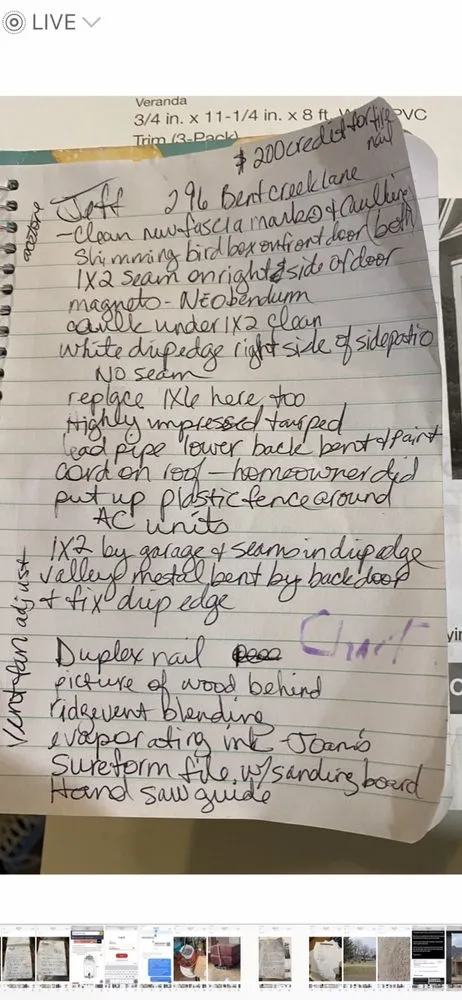 LIVE
Veranda
3/4 in. x 11-1/4 in. x 8 ft. PVC
Trim (3-Pack)
$200 credit for tire
nail
acetone
Jeff 296 Bentcreek lane
-Clean new fascia marks & caulking
Slimming bird box on front door (both)
1X2 seam on right side of door
magneto - NEObendum
caulk under 1X2 clean
white drip edge right side of side patio
NO seam
replace 1X6 here too
Highly impressed tarped
lead pipe lower back bent & paint
cord on roof - homeowner did
put up plastic fence around
AC units
1X2 by garage & seams in drip edge
valley metal bent by back door
& fix drip edge
Vent fan adjust
Duplex nail
picture of wood behind
ridgevent blending
evaporating ink - Joann's
Sureform file w/ sanding board
Hand saw guide